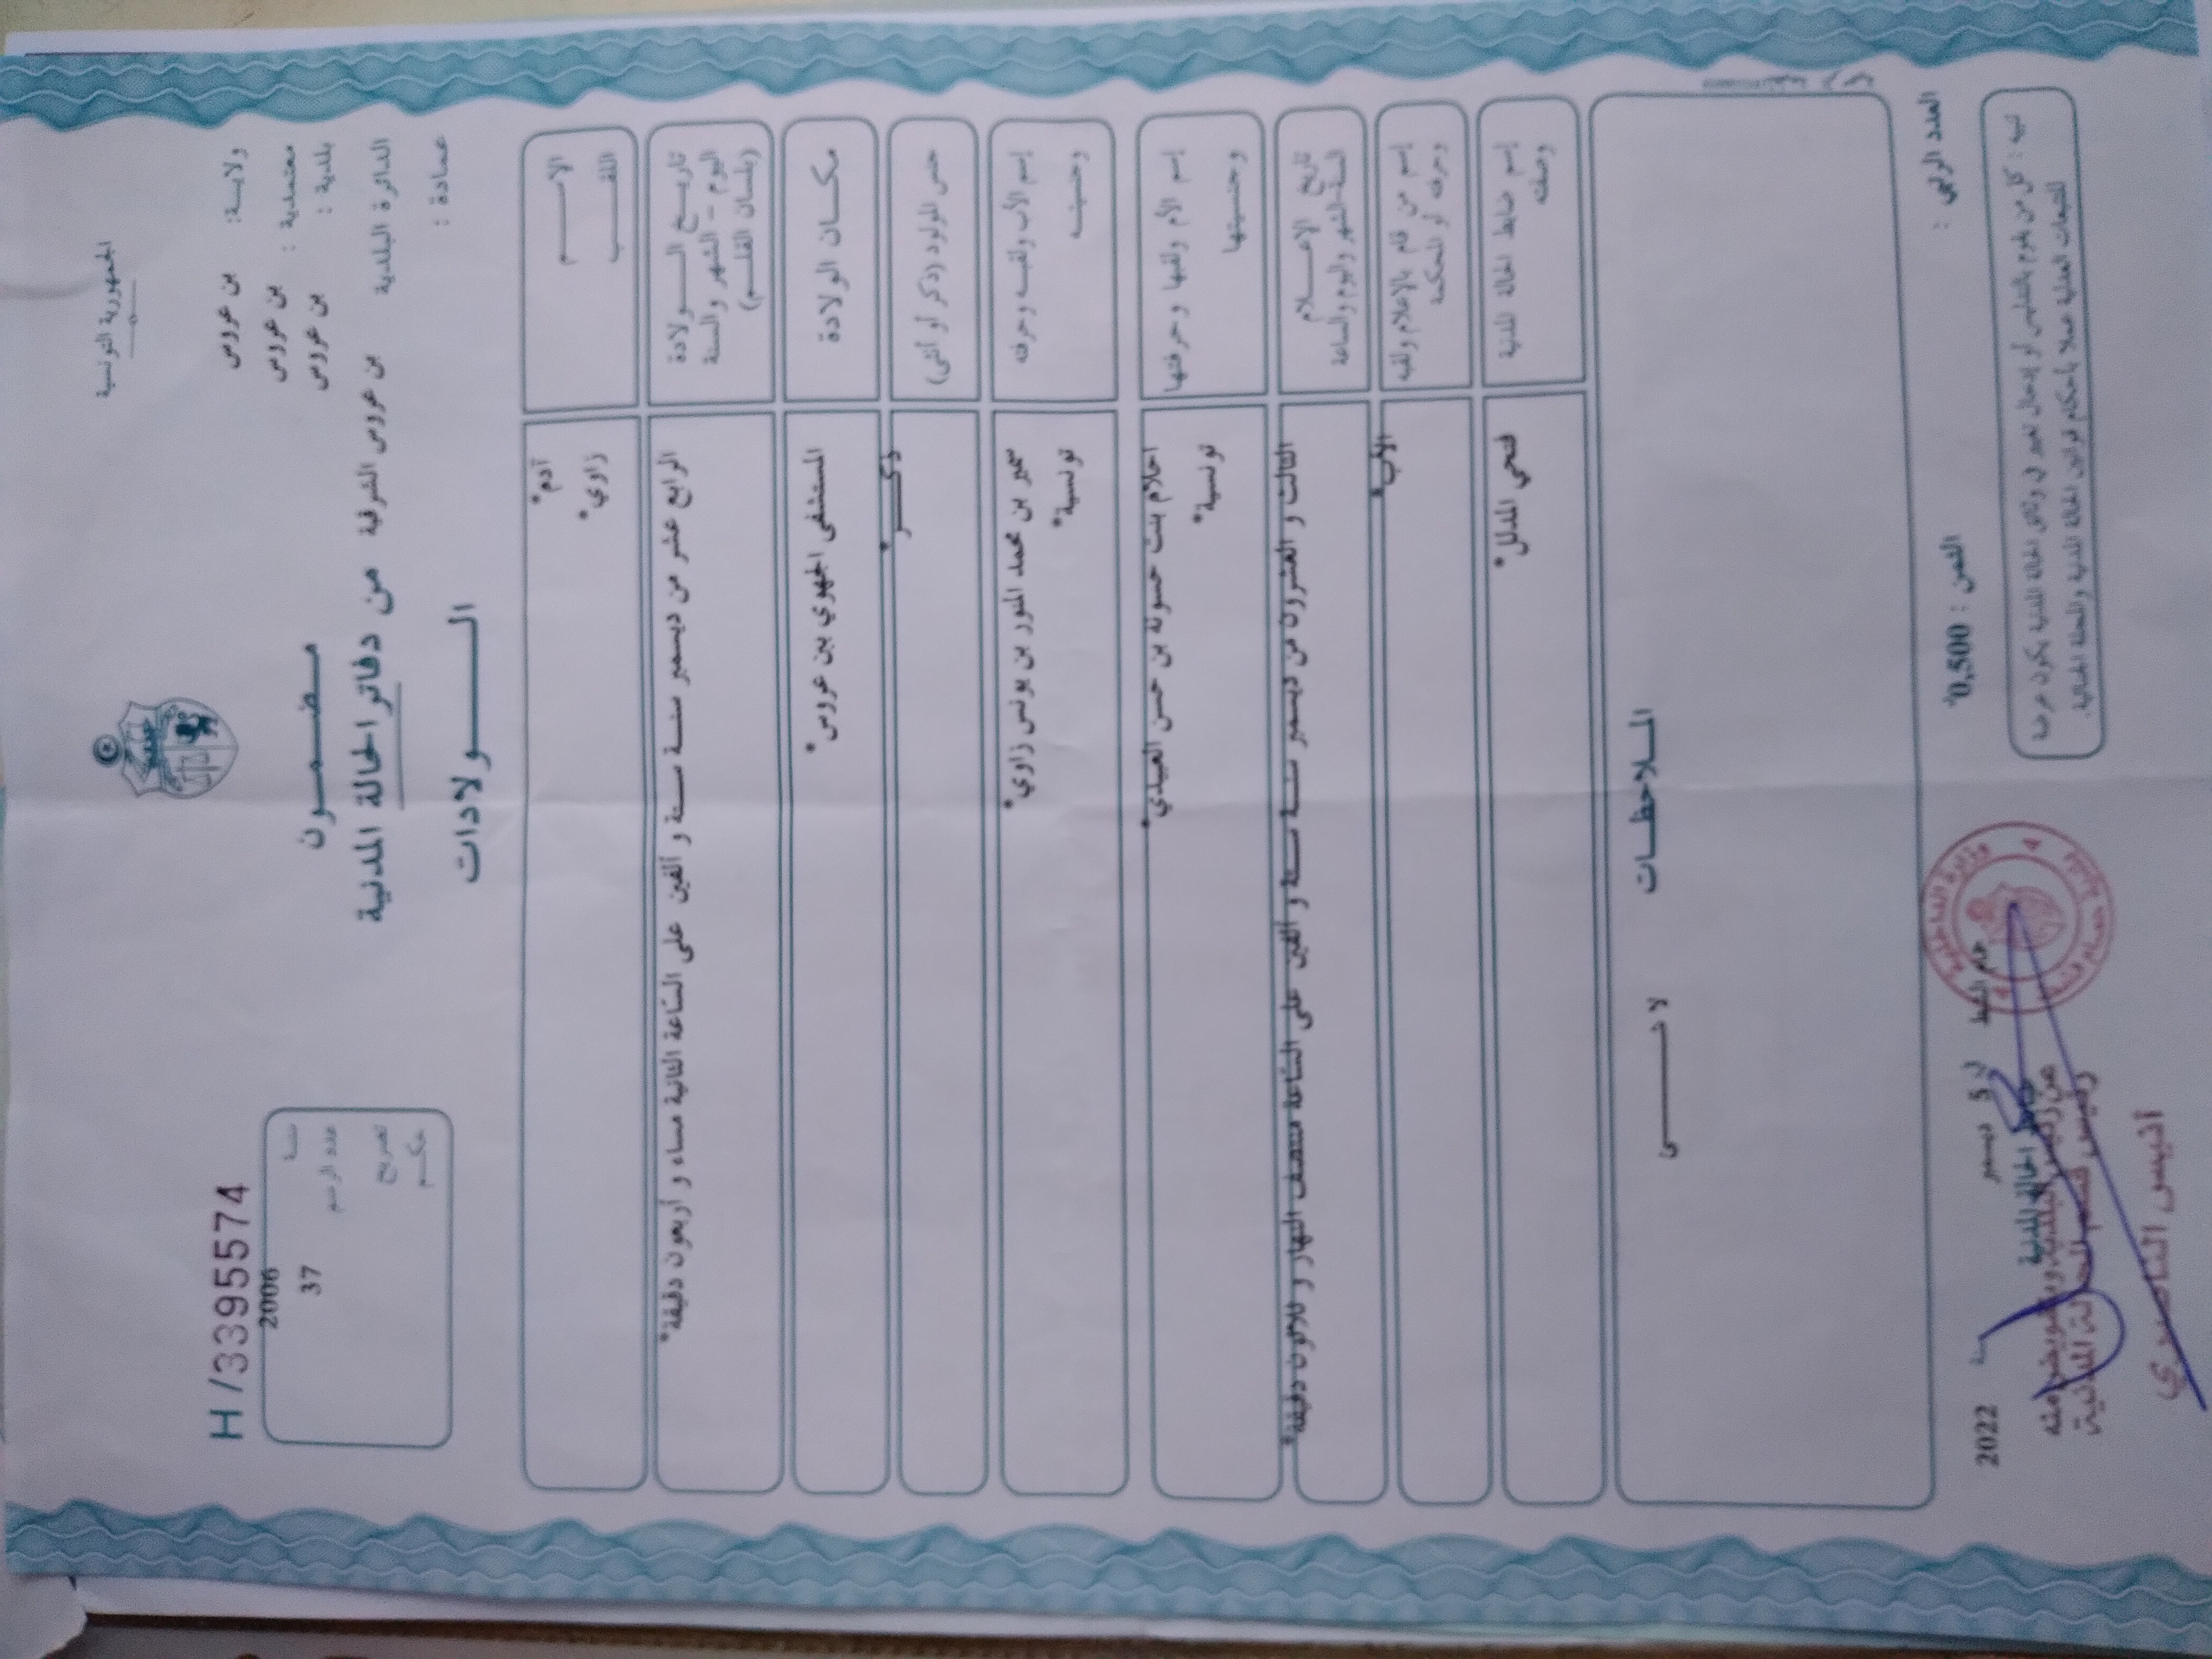 الجمهورية التونسية
ولاية: بن عروس
معتمدية : بن عروس
بلدية : بن عروس
الدائرة البلدية بن عروس الشرقية
عمادة :
H /33955574
سنة 2006
عدد الرسم 37
تصريح
حكم
مضمون
من دفاتر الحالة المدنية
الولادات
الاسم آدم*
اللقب زاوي*
تاريخ الولادة الرابع عشر من ديسمبر سنة ستة و ألفين على الساعة الثانية مساء و أربعون دقيقة*
اليوم – الشهر والسنة
(بلسان القلم)
مكان الولادة المستشفى الجهوي ببن عروس*
جنس المولود (ذكر أو أنثى) ذكر*
إسم الأب ولقبه وحرفته سمير بن محمد المنور بن يونس زاوي*
وجنسيته تونسية*
إسم الأم ولقبها وحرفتها احلام بنت حسونة بن حسن العبيدي*
وجنسيتها تونسية*
تاريخ الإعلام الثالث و العشرون من ديسمبر سنة ستة و ألفين على الساعة منتصف النهار و ثلاثون دقيقة*
السنة والشهر واليوم والساعة
إسم من قام بالإعلام ولقبه الأب*
وحرفته أو المحكمة
إسم ضابط الحالة المدنية فتحي المدلل*
وصفته
الملاحظات
لا شيء
العدد الرتبي :
الثمن : 0,500
تنبيه : كل من يقوم بالتدليس أو إدخال تغيير في وثائق الحالة المدنية يكون عرضة
للتتبعات العدلية عملا بأحكام قوانين الحالة المدنية والمجلة الجنائية.
في 5 ديسمبر سنة 2022
ضابط الحالة المدنية
رئيس قسم الحالة المدنية
أنيس الناصري
وزارة الداخلية